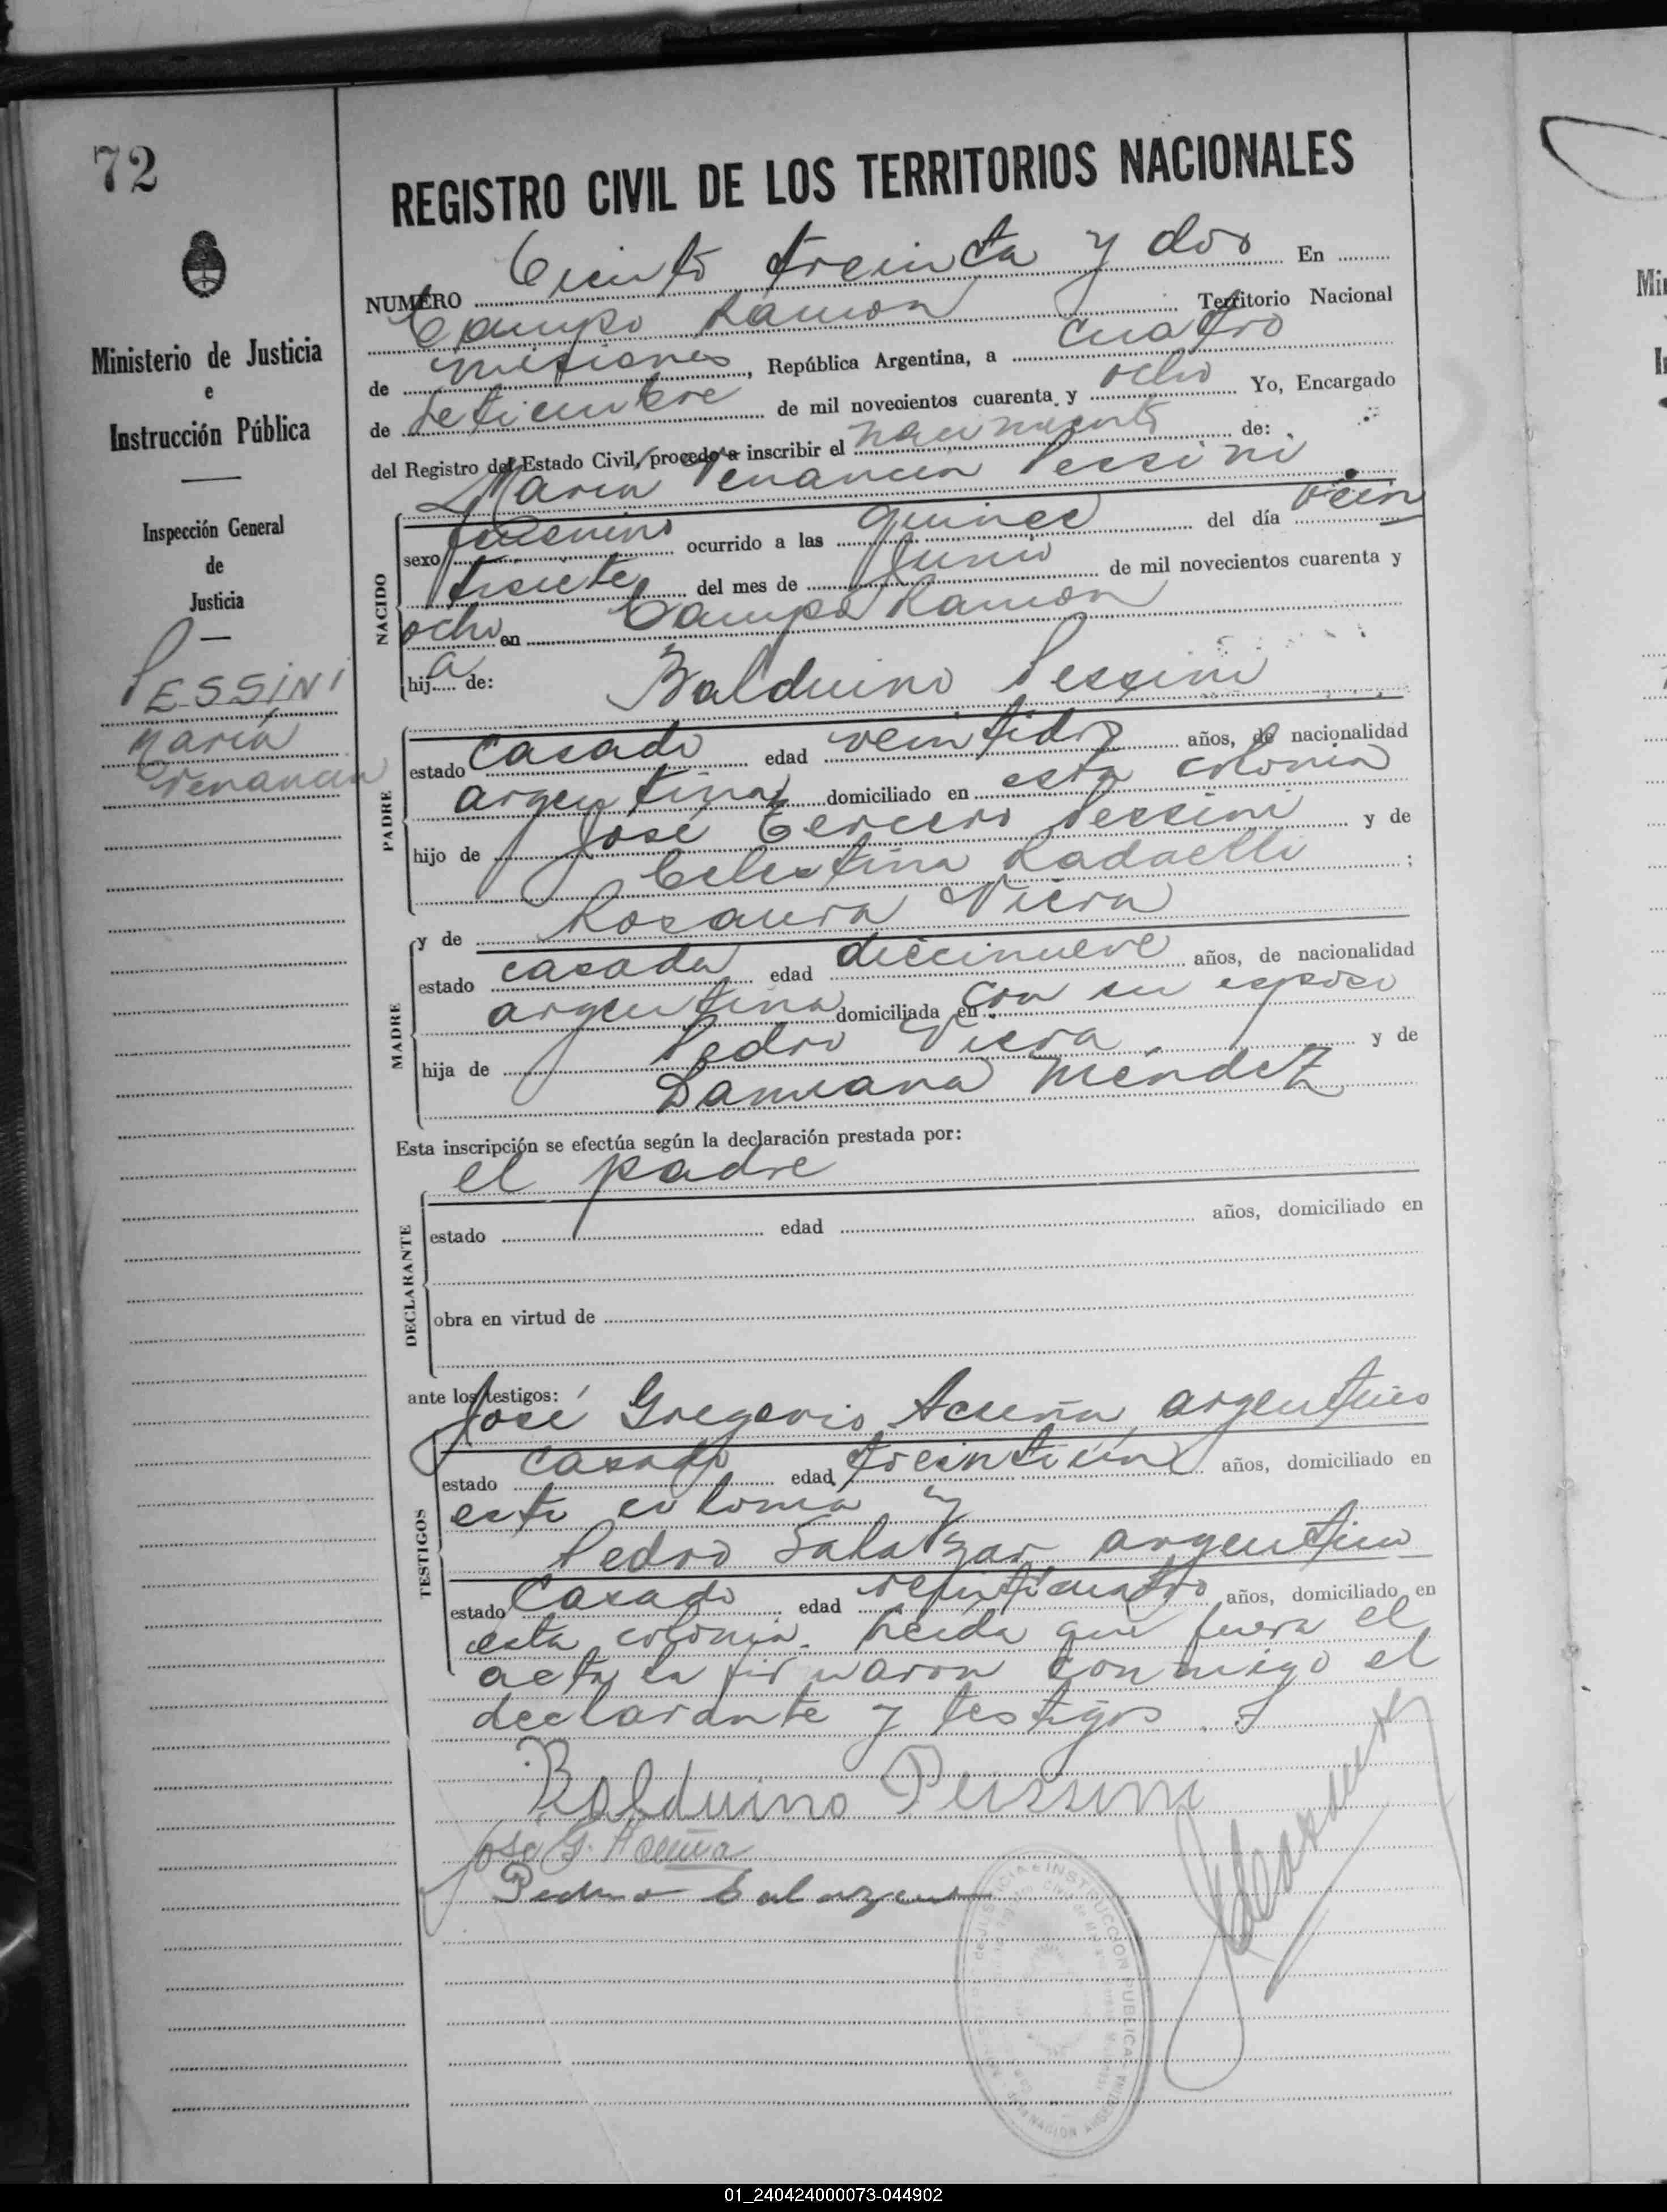 72
REGISTRO CIVIL DE LOS TERRITORIOS NACIONALES
NUMERO Ciento treinta y dos En
Campo Ramon Territorio Nacional
de Misiones, República Argentina, a cuatro
de Setiembre de mil novecientos cuarenta y ocho Yo, Encargado
del Registro del Estado Civil, procedo a inscribir el nacimiento de:
Maria Venancia Pessini
NACIDO
sexo femenino ocurrido a las quince del día vein
tisiete del mes de Junio de mil novecientos cuarenta y
ocho en Campo Ramon
hija de: Balduino Pessini
PADRE
estado casado edad veintidos años, de nacionalidad
argentina domiciliado en esta colonia
hijo de José Tercero Pessini y de
Celestina Radaelli ;
y de Rosaura Viera
MADRE
estado casada edad diecinueve años, de nacionalidad
argentina domiciliada en con su esposo
hija de Pedro Viera y de
Damiana Méndez
Esta inscripción se efectúa según la declaración prestada por:
el padre
DECLARANTE
estado edad años, domiciliado en
obra en virtud de
ante los testigos:
José Gregorio Acuña argentino
TESTIGOS
estado casado edad treintiun años, domiciliado en
esta colonia y
Pedro Salatzar argentino
estado casado edad veinticuatro años, domiciliado en
esta colonia. Leída que fuera el
acta la firmaron conmigo el
declarante y testigos.
Balduino Peissini
José G. Acuña
Pedro Salazar
Ministerio de Justicia
e
Instrucción Pública
Inspección General
de
Justicia
PESSINI
María
Venancia
01_240424000073-044902